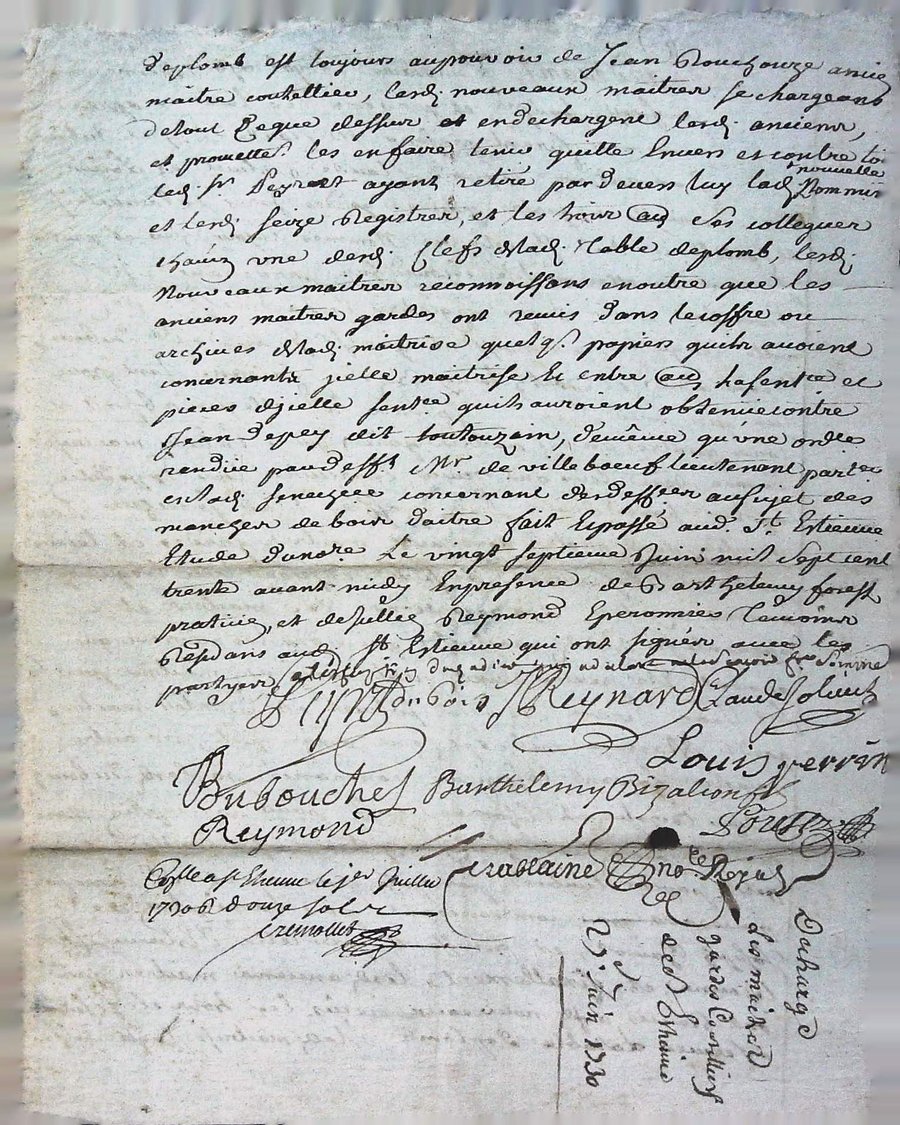 deplomb est toujours aupouvoir de Jean Rouchouze ancie
maitre coutellier, lesd. nouveaux maitres se chargeans
detout ceque dessus et endechargent lesd. anciens,
et promettet. les enfaire tenir quitte Envers et contre to
nouvelle
led. Sr. Peyret ayant retiré pardevers luy lad. Pommie
et lesd. seize Registres, et les trois aus ses collegues
chaun une desd. Clefs de lad. Table deplomb, lesd.
Nouveaux maitres reconnoissans enoutre que les
anciens maitres gardes ont remis dans le coffre ou
archives de lad. maitrise quelqs. papiers quils avoient
concernants jcelle maitrise Et entre aus la sentce et
pieces djcelle sentce quils auroient obtenue contre
Jean Depey dit toutouzain, demême qu'une ordce
rendue par defft Mr. de villeboeuf lieutenant parter
en lad. senechcee concernant desdeffces ausujet des
manches de bois daitre fait Epassé aud. St. Estienne
Etude dunore. Le vingt septieme Juin mil sept cent
trente avant midy Enpresence de Barthelemy forest
praticien, et de Jullie Reymond Eperonnier Temoins
Resdans aud. St Estienne qui ont signés avec les
partyes
Dubois JReynard Claude Solicut
Louis perrin
Dubouchet Barthelemy Bizalion
Reymond
Crablaine no.re Royal
Conlle a st Etienne le jer Juillet
1730 R douze sols
cremollet
Décharge
Les maitres
gardes Coutelliers
de St Ethienne
27e Juin 1730